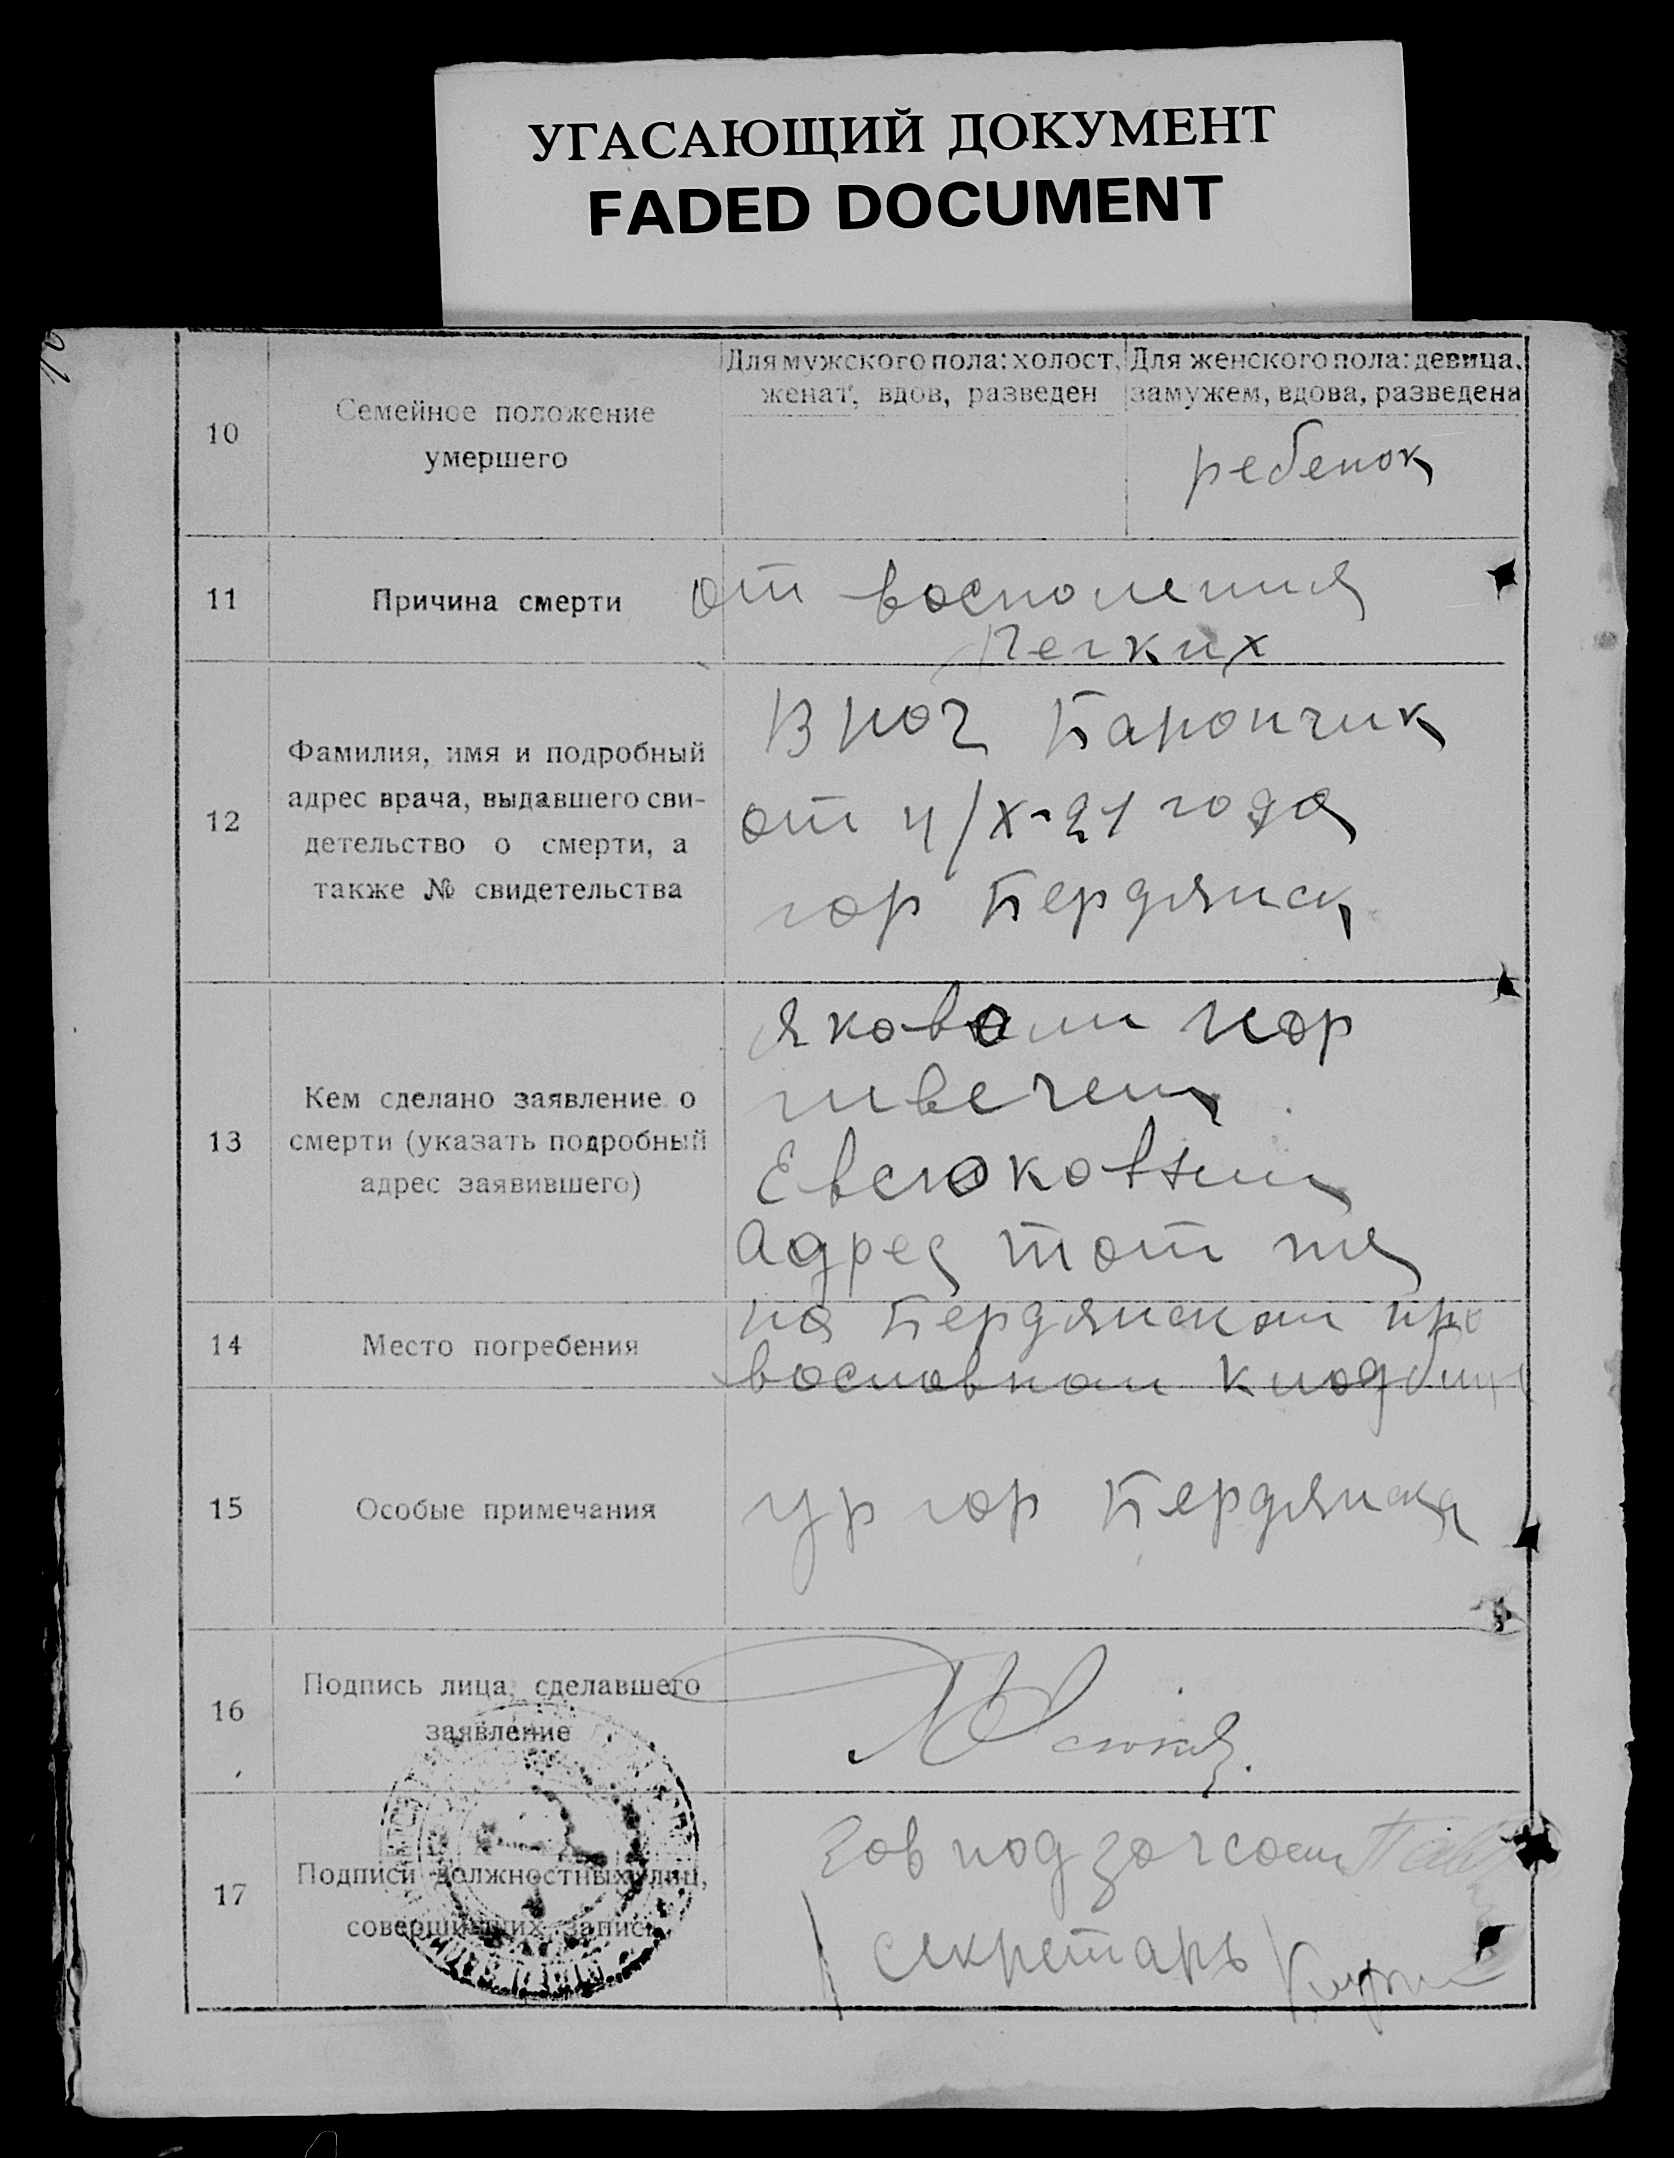 УГАСАЮЩИЙ ДОКУМЕНТ
FADED DOCUMENT
10
Семейное положение
умершего
Для мужского пола: холост,
женат, вдов, разведен
Для женского пола: девица,
замужем, вдова, разведена
ребенок
11
Причина смерти
от восполения
Легких
12
Фамилия, имя и подробный
адрес врача, выдавшего сви-
детельство о смерти, а
также № свидетельства
Врач
от 4/X-21 года
гор Бердянск
13
Кем сделано заявление о
смерти (указать подробный
адрес заявившего)
Евсюковым
Адрес тот же
14
Место погребения
на Бердянском пра
вославном кладбище
15
Особые примечания
ур гор Бердянска
16
Подпись лица, сделавшего
заявление
17
Подписи должностных лиц,
совершивших запись
Зав под загсом
Секретарь